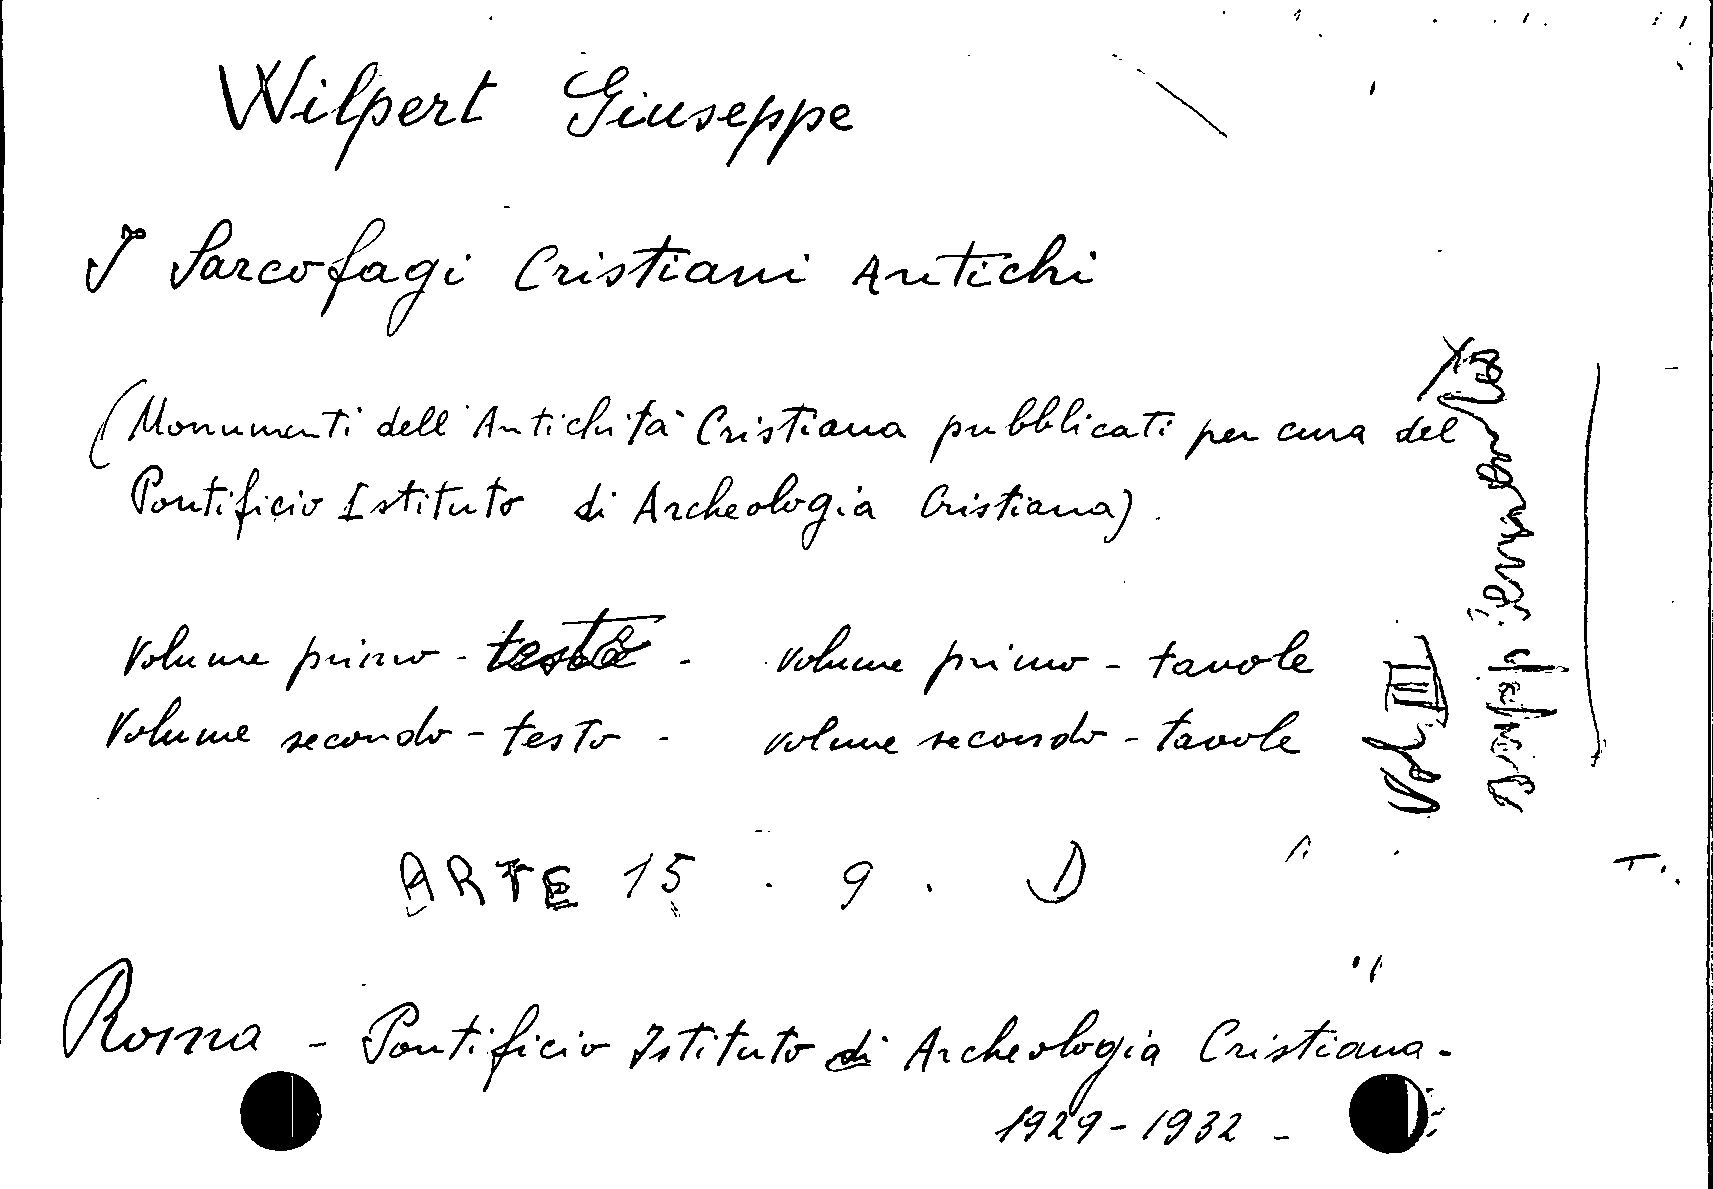 Wilpert Giuseppe
I Sarcofagi Cristiani Antichi
(Monumenti dell'Antichità Cristiana pubblicati per cura del
Pontificio Istituto di Archeologia Cristiana).
Volume primo - testo - volume primo - tavole
Volume secondo - testo - volume secondo - tavole
ARTE 15 . 9 . D
Roma - Pontificio Istituto di Archeologia Cristiana -
1929-1932 -
Vol. III